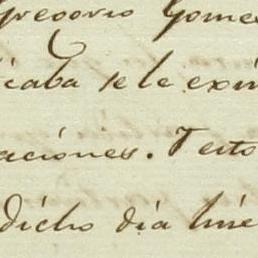 Gregorio Gome
icaba se le exim
aciones. Testo
dicho dia lune